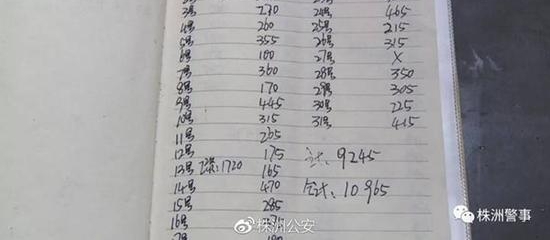 3号 230 24号 465
4号 260 25号 215
5号 355 26号 315
6号 100 27号 X
7号 360 28号 350
8号 170 29号 305
9号 445 30号 225
10号 315 31号 415
11号 265
12号 175 计: 9245
13号 1720 165
14号 470 合计: 10965
15号 285
16号
株洲公安
株洲警事